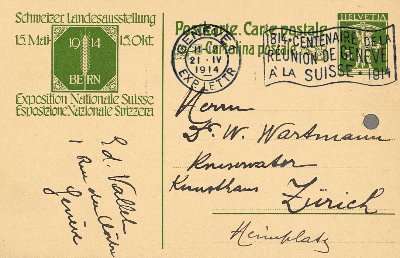 Schweizer. Landesausstellung
15. Mai 1914 15. Okt.
BERN
Exposition Nationale Suisse
Esposizione Nazionale Svizzera
Postkarte. Carte postale
Cartolina postale
GENÈVE
21·IV
1914
EXP. LETTR
1814·CENTENAIRE DE LA
RÉUNION DE GENÈVE
À LA SUISSE·1914
HELVETIA
Herrn
Dr. W. Wartmann
Konservator
Kunsthaus Zürich
Heimplatz
Ed. Vallet
1 Rue des
Genève